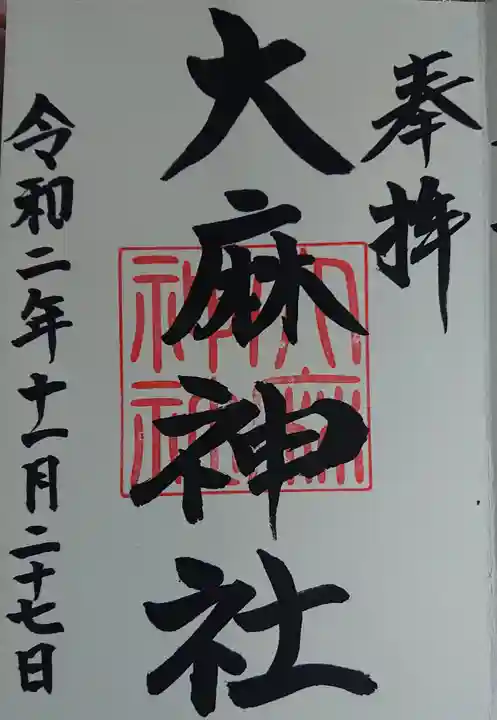 奉拝
大麻神社
大麻
神社
令和二年十一月二十七日